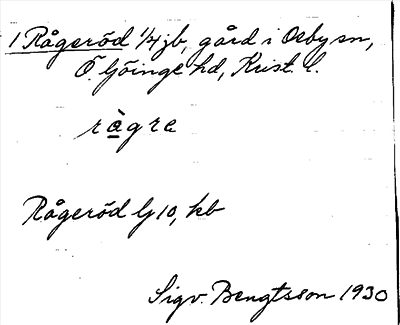 1 Rågeröd 1/4 jb, gård i Osby sn,
Ö. Göinge hd, Krist. l.
rågre
Rågeröd lj 10, kb
Sigv. Bengtsson 1930